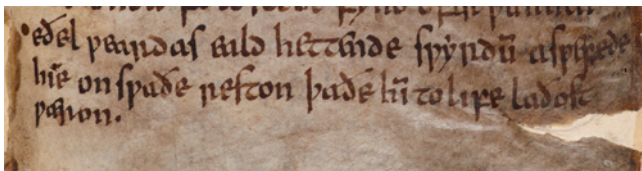 eðel ƿeardas eald hettende sƿyrdū asƿefede
hie on sƿaðe reston þaðe hī to life ladost
ƿæron.